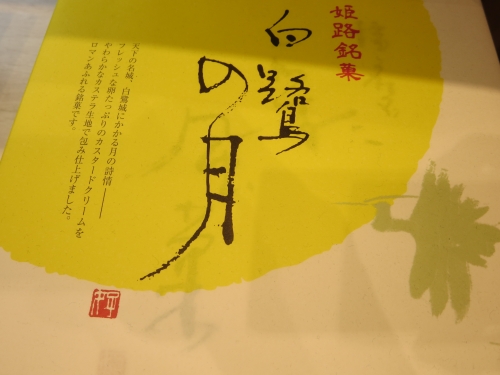 姫路銘菓
白鷺の月
天下の名城、白鷺城にかかる月の詩情――
フレッシュな卵たっぷりのカスタードクリームを
やわらかなカステラ生地で包み仕上げました。
ロマンあふれる銘菓です。